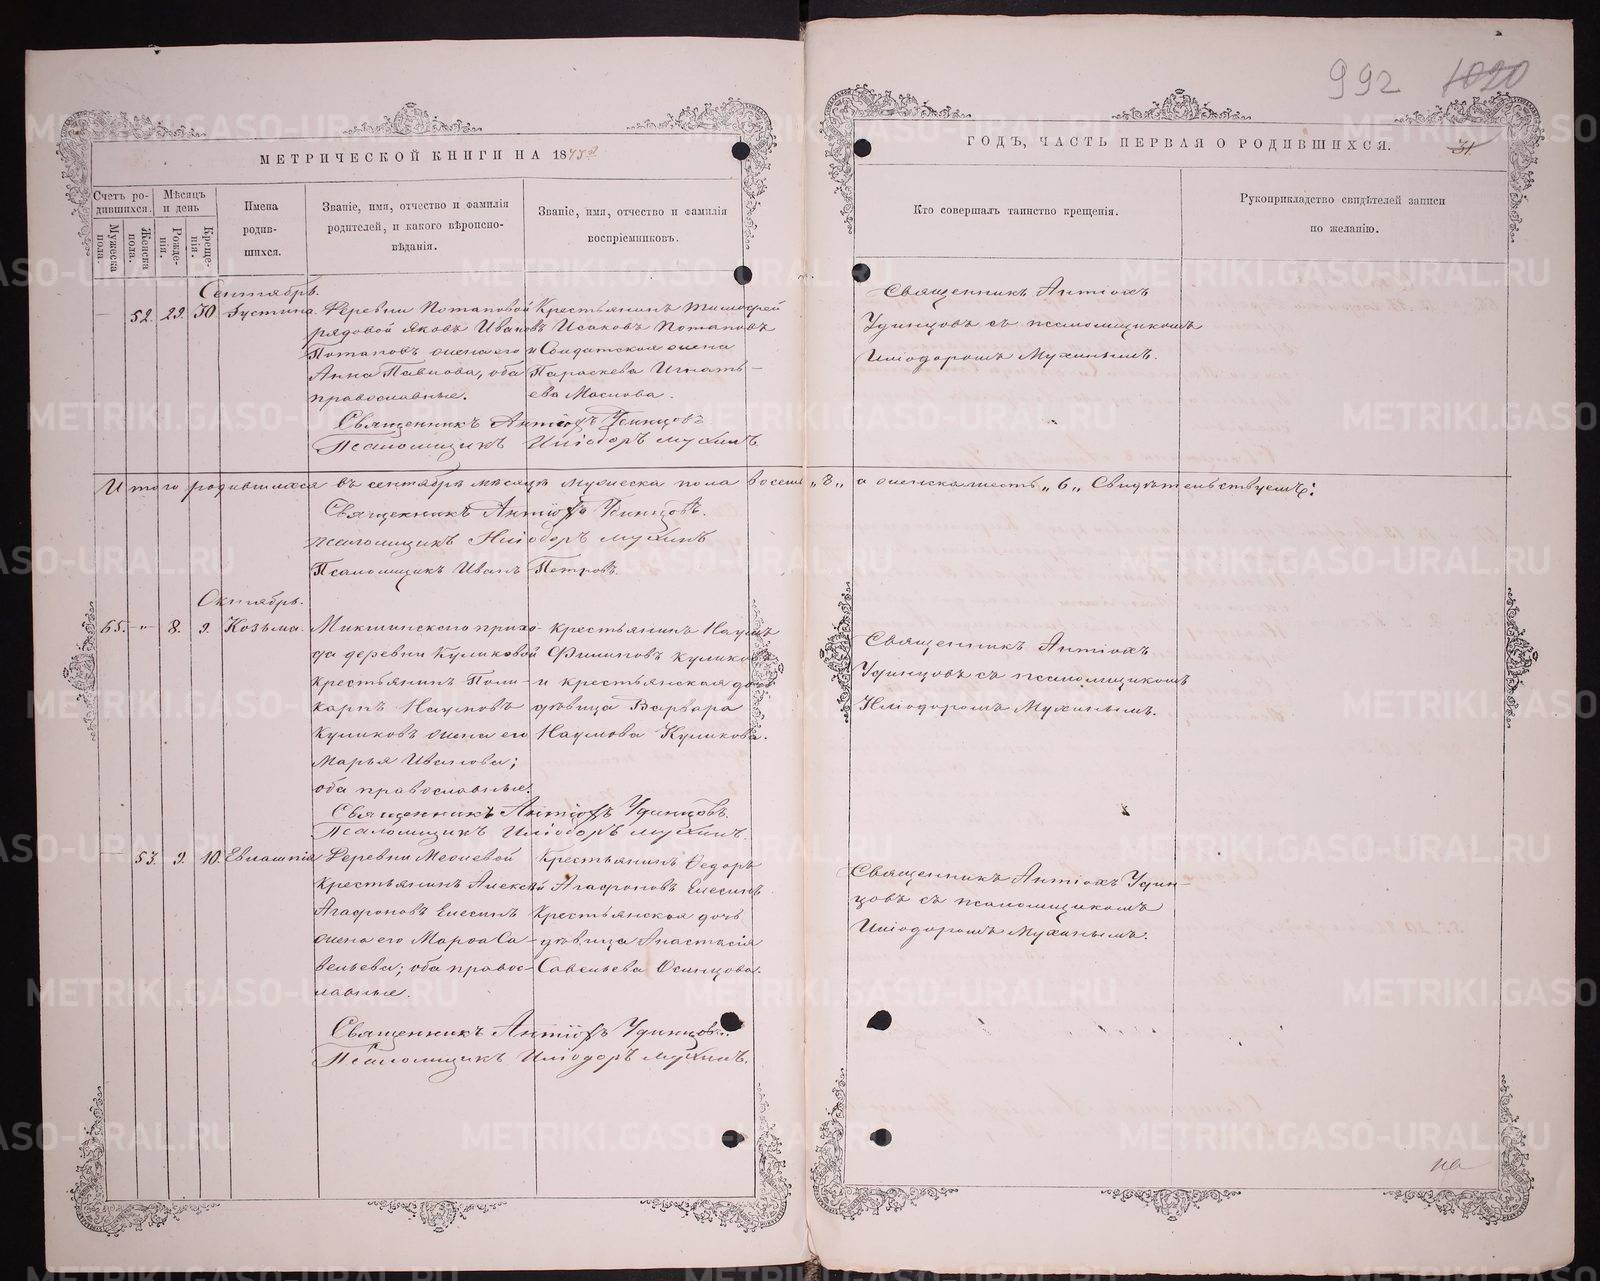 992 1020
МЕТРИЧЕСКОЙ КНИГИ НА 18
ГОДЪ, ЧАСТЬ ПЕРВАЯ О РОДИВШИХСЯ.
31
Счетъ ро-
дившихся.
Мужеска
пола.
Женска
пола.
Мѣсяцъ
и день
Рожде-
нія.
Креще-
нія.
Имена
родив-
шихся.
Званіе, имя, отчество и фамилія
родителей, и какого вѣроиспо-
вѣданія.
Званіе, имя, отчество и фамилія
воспріемниковъ.
Кто совершалъ таинство крещенія.
Рукоприкладство свидѣтелей записи
по желанію.
Сентябрь.
52. 29. 30 Іустина.
Деревни Потаповой
рядовой Яковъ Ивановъ
Потаповъ жена его
Анна Павлова, оба
православные.
Крестьянинъ Тимофей
Исаковъ Потаповъ
и Солдатская жена
Параскева Игнать-
ева Маслова.
Священникъ Антіохъ
Удинцовъ съ псаломщикомъ
Иліодоромъ Мухинымъ.
Священникъ Антіохъ Удинцовъ
Псаломщикъ Иліодоръ Мухинъ
Итого родившихся въ сентябрѣ мѣсяцѣ мужеска пола восемь „8„ а женска шесть „6„ Свидѣтельствуемъ:
Священникъ Антіохъ Удинцовъ.
псаломщикъ Иліодоръ Мухинъ
Псаломщикъ Иванъ Петровъ.
Октябрь.
65. - 8. 9. Козьма.
Микшинскаго прихо-
да деревни Куликовой
крестьянинъ Поли-
карпъ Наумовъ
Куликовъ жена его
Марья Иванова;
оба православные.
Крестьянинъ Наумъ
Филиповъ Куликовъ
и крестьянская дочь
дѣвица Варвара
Наумова Куликова.
Священникъ Антіохъ
Удинцовъ съ псаломщикомъ
Иліодоромъ Мухинымъ.
Священникъ Антіохъ Удинцовъ.
Псаломщикъ Иліодоръ Мухинъ.
53. 9. 10. Евлампія
Деревни
Крестьянинъ Алексѣй
Агафоновъ Елесинъ
жена его Марѳа Са-
вельева; оба правос-
лавные.
Крестьянинъ Ѳедоръ
Агафоновъ Елесинъ
Крестьянская дочь
дѣвица Анастасія
Савельева Осинцова.
Священникъ Антіохъ Удин-
цовъ съ псаломщикомъ
Иліодоромъ Мухинымъ.
Священникъ Антіохъ Удинцовъ.
Псаломщикъ Иліодоръ Мухинъ.
METRIKI.GASO-URAL.RU